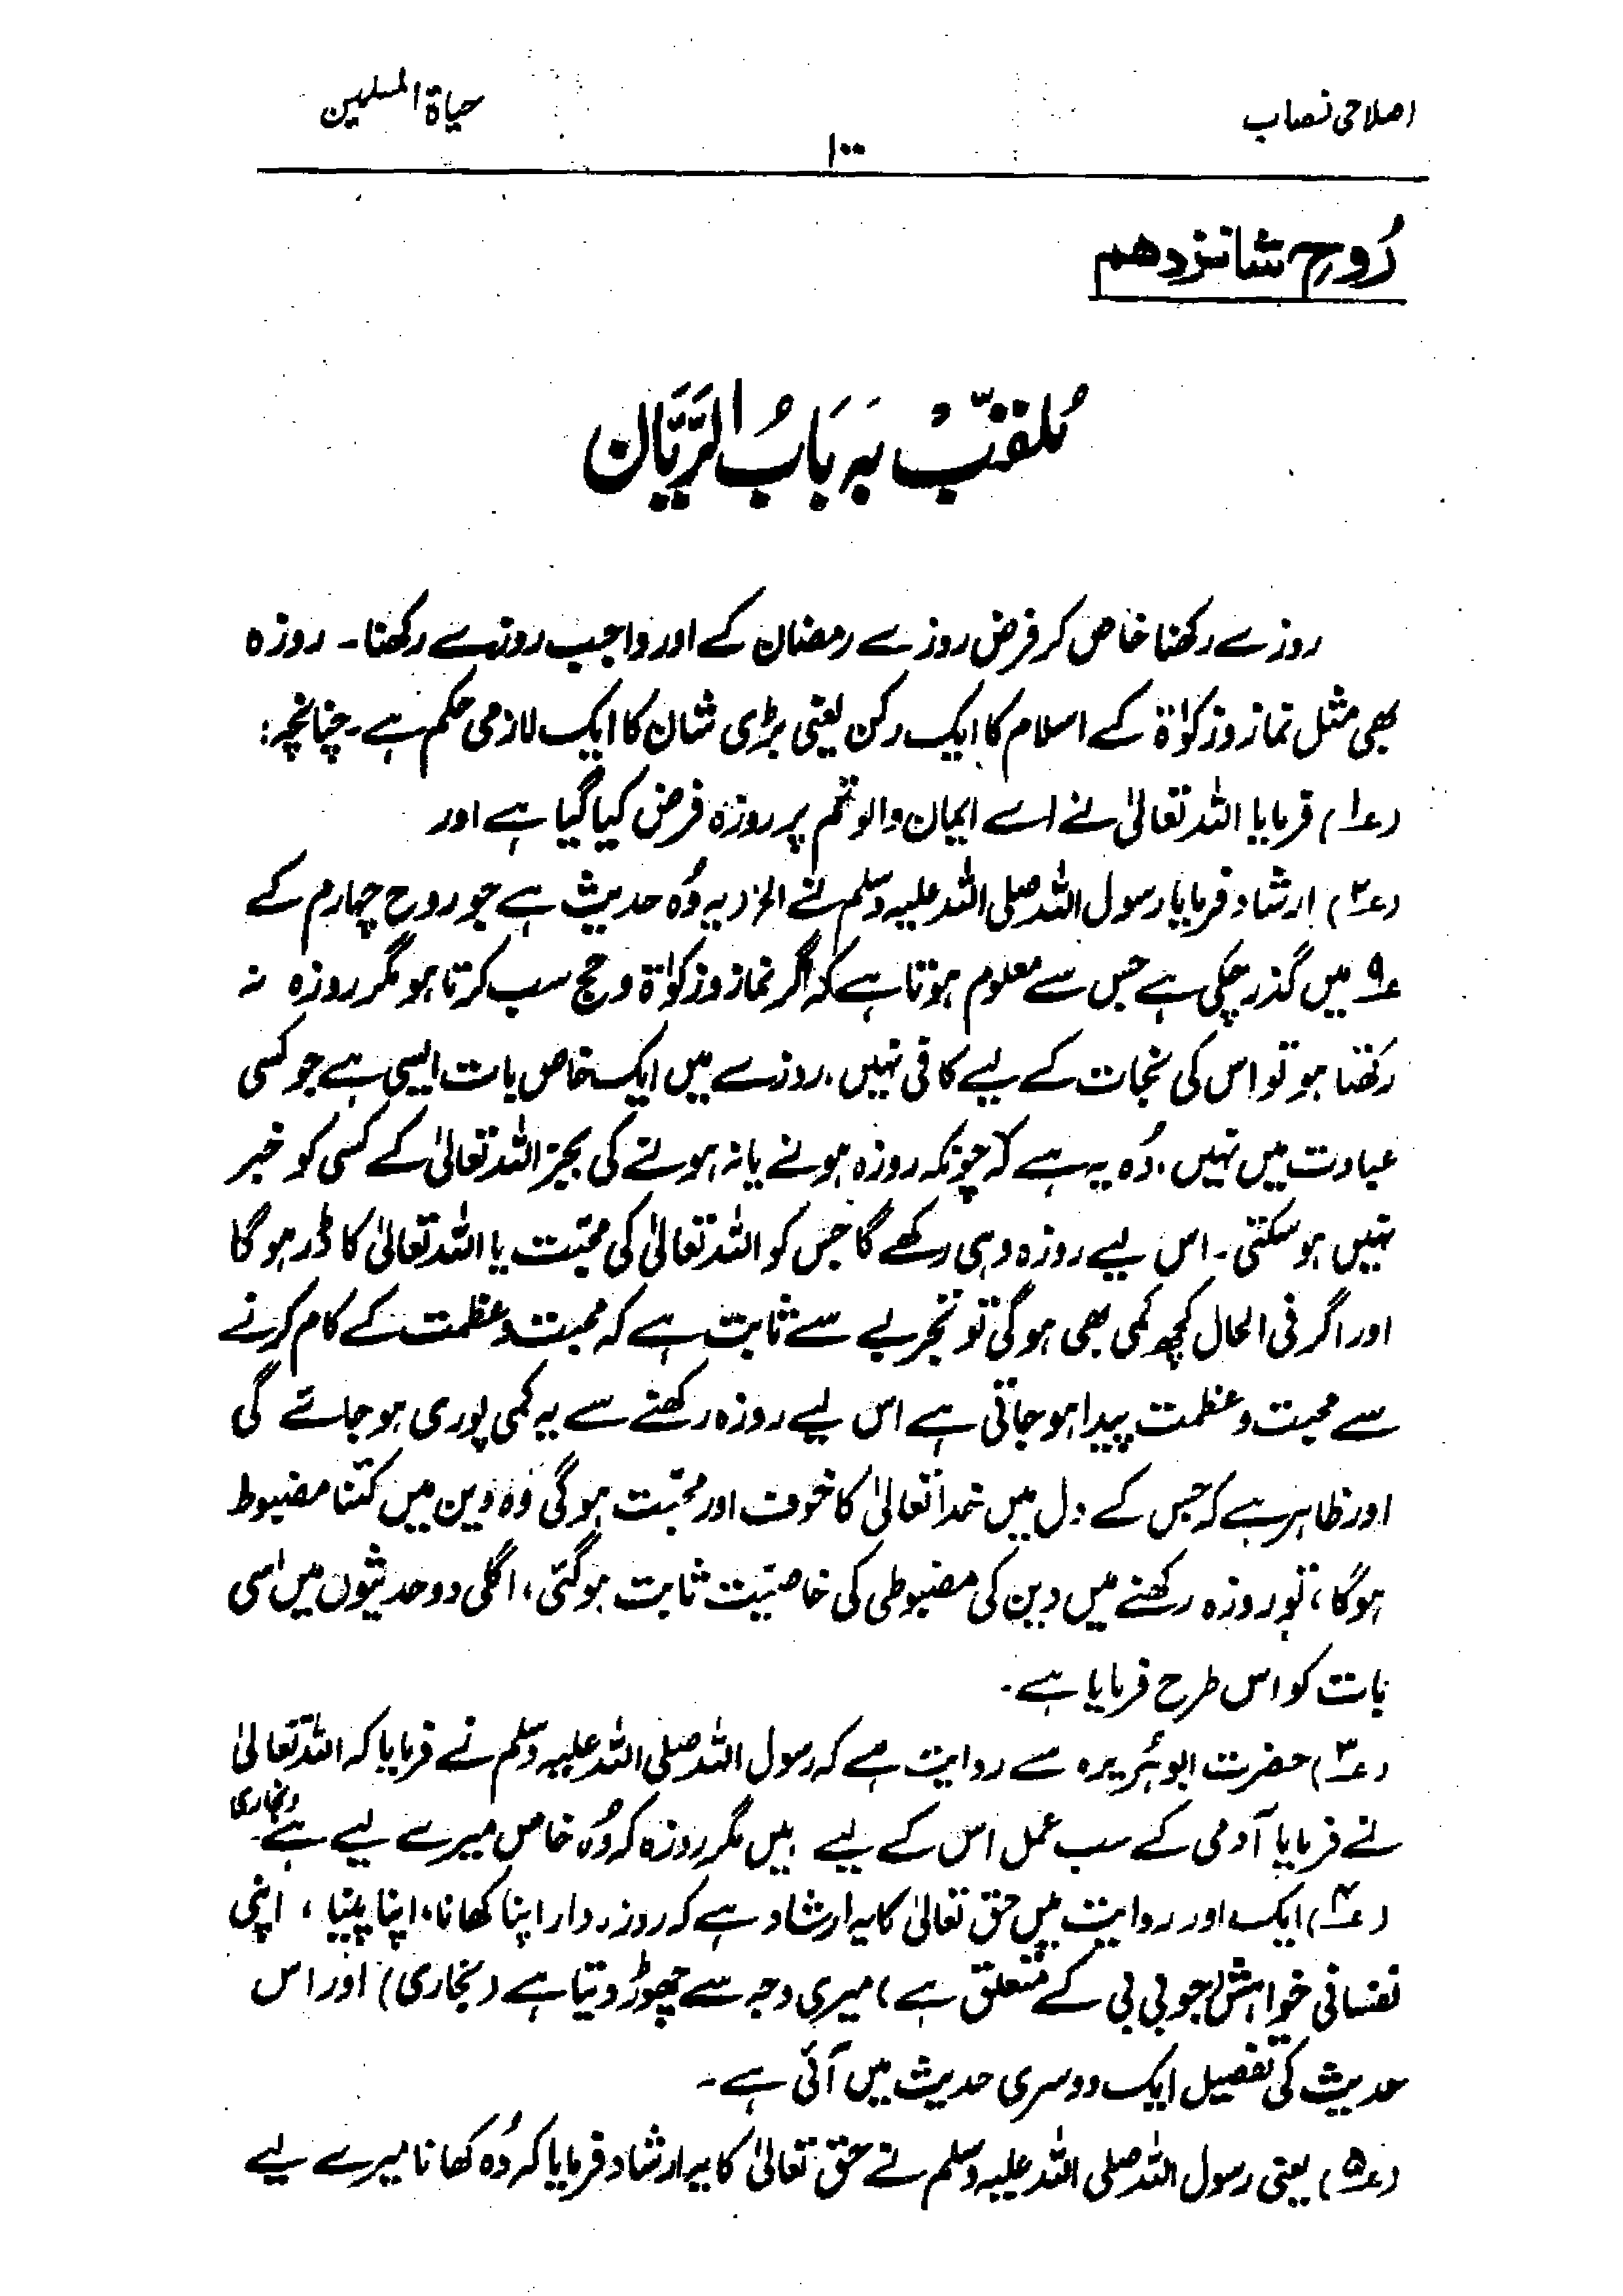 اصلاحی نصاب
۱۰۰
حیاۃ المسلمین
رُوحِ شانزدهم
مُلقّبْ بَہ بَابُ الرَّیَّان
روزے رکھنا خاص کر فرض روزے رمضان کے اور واجب روزے رکھنا۔ روزہ
بھی مثل نماز و زکوٰۃ کے اسلام کا ایک رکن یعنی بڑی شان کا ایک لازمی حکم ہے۔ چنانچہ:
(ع۱) فرمایا اللہ تعالیٰ نے اے ایمان والو تم پر روزہ فرض کیا گیا ہے اور
(ع۲) ارشاد فرمایا رسول اللہ صلی اللہ علیہ وسلم نے الخ (یہ وُہ حدیث ہے جو روح چہارم کے
ع۹ میں گذر چکی ہے جس سے معلوم ہوتا ہے کہ اگر نماز و زکوٰۃ و حج سب کرتا ہو مگر روزہ نہ
رکھتا ہو تو اس کی نجات کے لیے کافی نہیں۔ روزے میں ایک خاص بات ایسی ہے جو کسی
عبادت میں نہیں۔ وُہ یہ ہے کہ چونکہ روزہ ہونے یا نہ ہونے کی بجز اللہ تعالیٰ کے کسی کو خبر
نہیں ہو سکتی۔ اس لیے روزہ وہی رکھے گا جس کو اللہ تعالیٰ کی محبّت یا اللہ تعالیٰ کا ڈر ہو گا
اور اگر فی الحال کچھ کمی بھی ہو گی تو تجربے سے ثابت ہے کہ محبت و عظمت کے کام کرنے
سے محبت و عظمت پیدا ہو جاتی ہے اس لیے روزہ رکھنے سے یہ کمی پوری ہو جائے گی
اور ظاہر ہے کہ جس کے دل میں خدا تعالیٰ کا خوف اور محبّت ہو گی وہ دین میں کتنا مضبوط
ہو گا، تو روزہ رکھنے میں دین کی مضبوطی کی خاصیّت ثابت ہو گئی، اگلی دو حدیثوں میں اسی
بات کو اس طرح فرمایا ہے۔
(ع۳) حضرت ابو ہُریرہ سے روایت ہے کہ رسول اللہ صلی اللہ علیہ وسلم نے فرمایا کہ اللہ تعالیٰ
نے فرمایا آدمی کے سب عمل اس کے لیے ہیں مگر روزہ کہ وُہ خاص میرے لیے ہے۔ (بخاری)
(ع۴) ایک اور روایت میں حق تعالیٰ کا یہ ارشاد ہے کہ روزہ دار اپنا کھانا، اپنا پینا، اپنی
نفسانی خواہش (جو بی بی کے متعلق ہے) میری وجہ سے چھوڑ دیتا ہے (بخاری) اور اس
حدیث کی تفصیل ایک دوسری حدیث میں آئی ہے۔
(ع۵) یعنی رسول اللہ صلی اللہ علیہ وسلم نے حق تعالیٰ کا یہ ارشاد فرمایا کہ وُہ کھانا میرے لیے